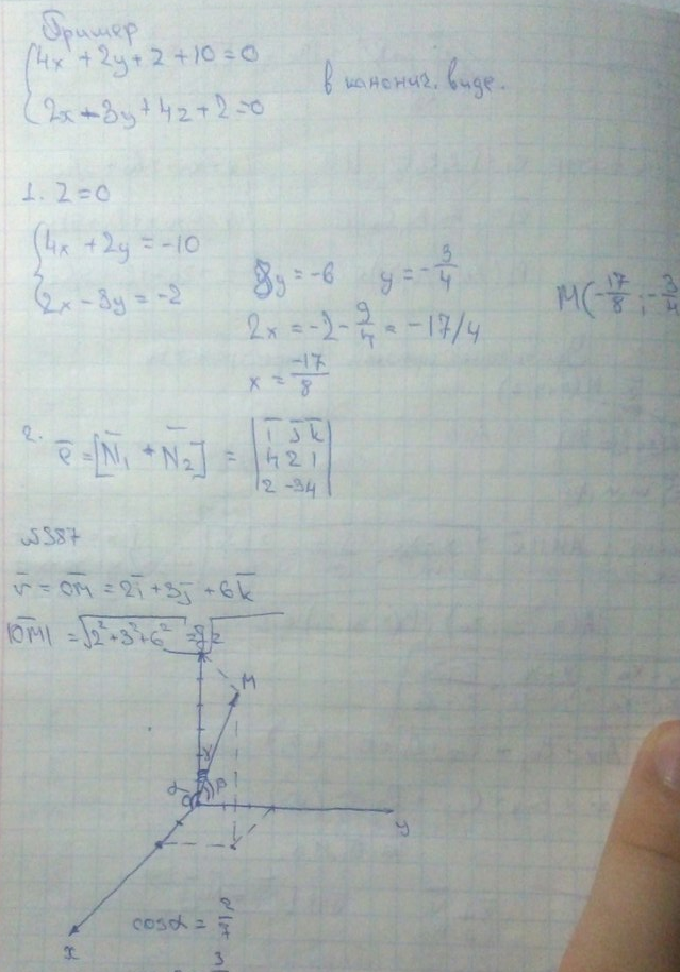 Пример
4x + 2y + z + 10 = 0
2x - 3y + 4z + 2 = 0
в канонич. виде.
1. z = 0
4x + 2y = -10
2x - 3y = -2
8y = -6 y = -3/4
2x = -2 - 9/4 = -17/4
x = -17/8
M(-17/8; -3/4
2. ē = [N̄₁ * N̄₂] =
ī j̄ k̄
4 2 1
2 -3 4
№387
r̄ = OM̄ = 2ī + 3j̄ + 6k̄
|OM̄| = √2²+3²+6²
M
γ
α
β
y
x
cosα = 2/7
3